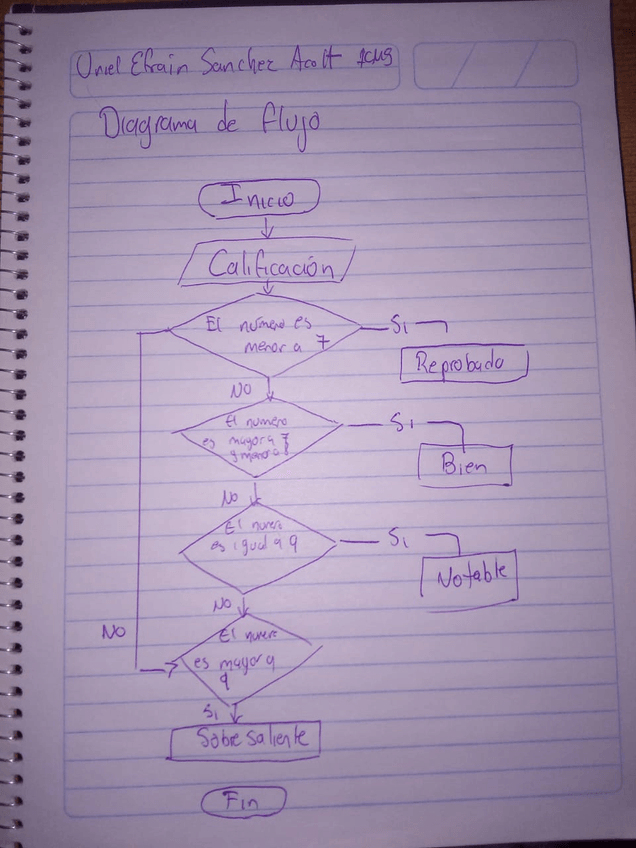 Uriel Efrain Sanchez Acolt 1CM9
Diagrama de flujo
Inicio
Calificación
El numero es
menor a 7
Si
Reprobado
NO
El numero
es mayor a 7
y menor a
Si
Bien
No
El numero
es igual a 9
Si
Notable
No
NO
El numero
es mayor a
9
Si
Sobresaliente
Fin